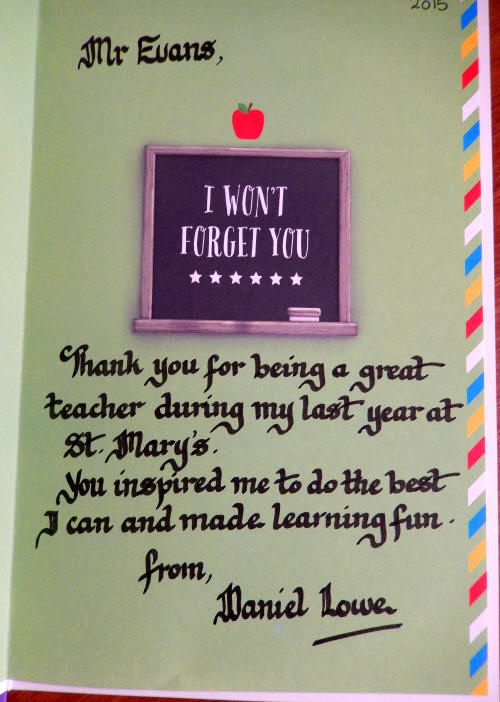 2015
Mr Evans,
I WON'T
FORGET YOU
Thank you for being a great
teacher during my last year at
St. Mary's.
You inspired me to do the best
I can and made learning fun.
from,
Daniel Lowe